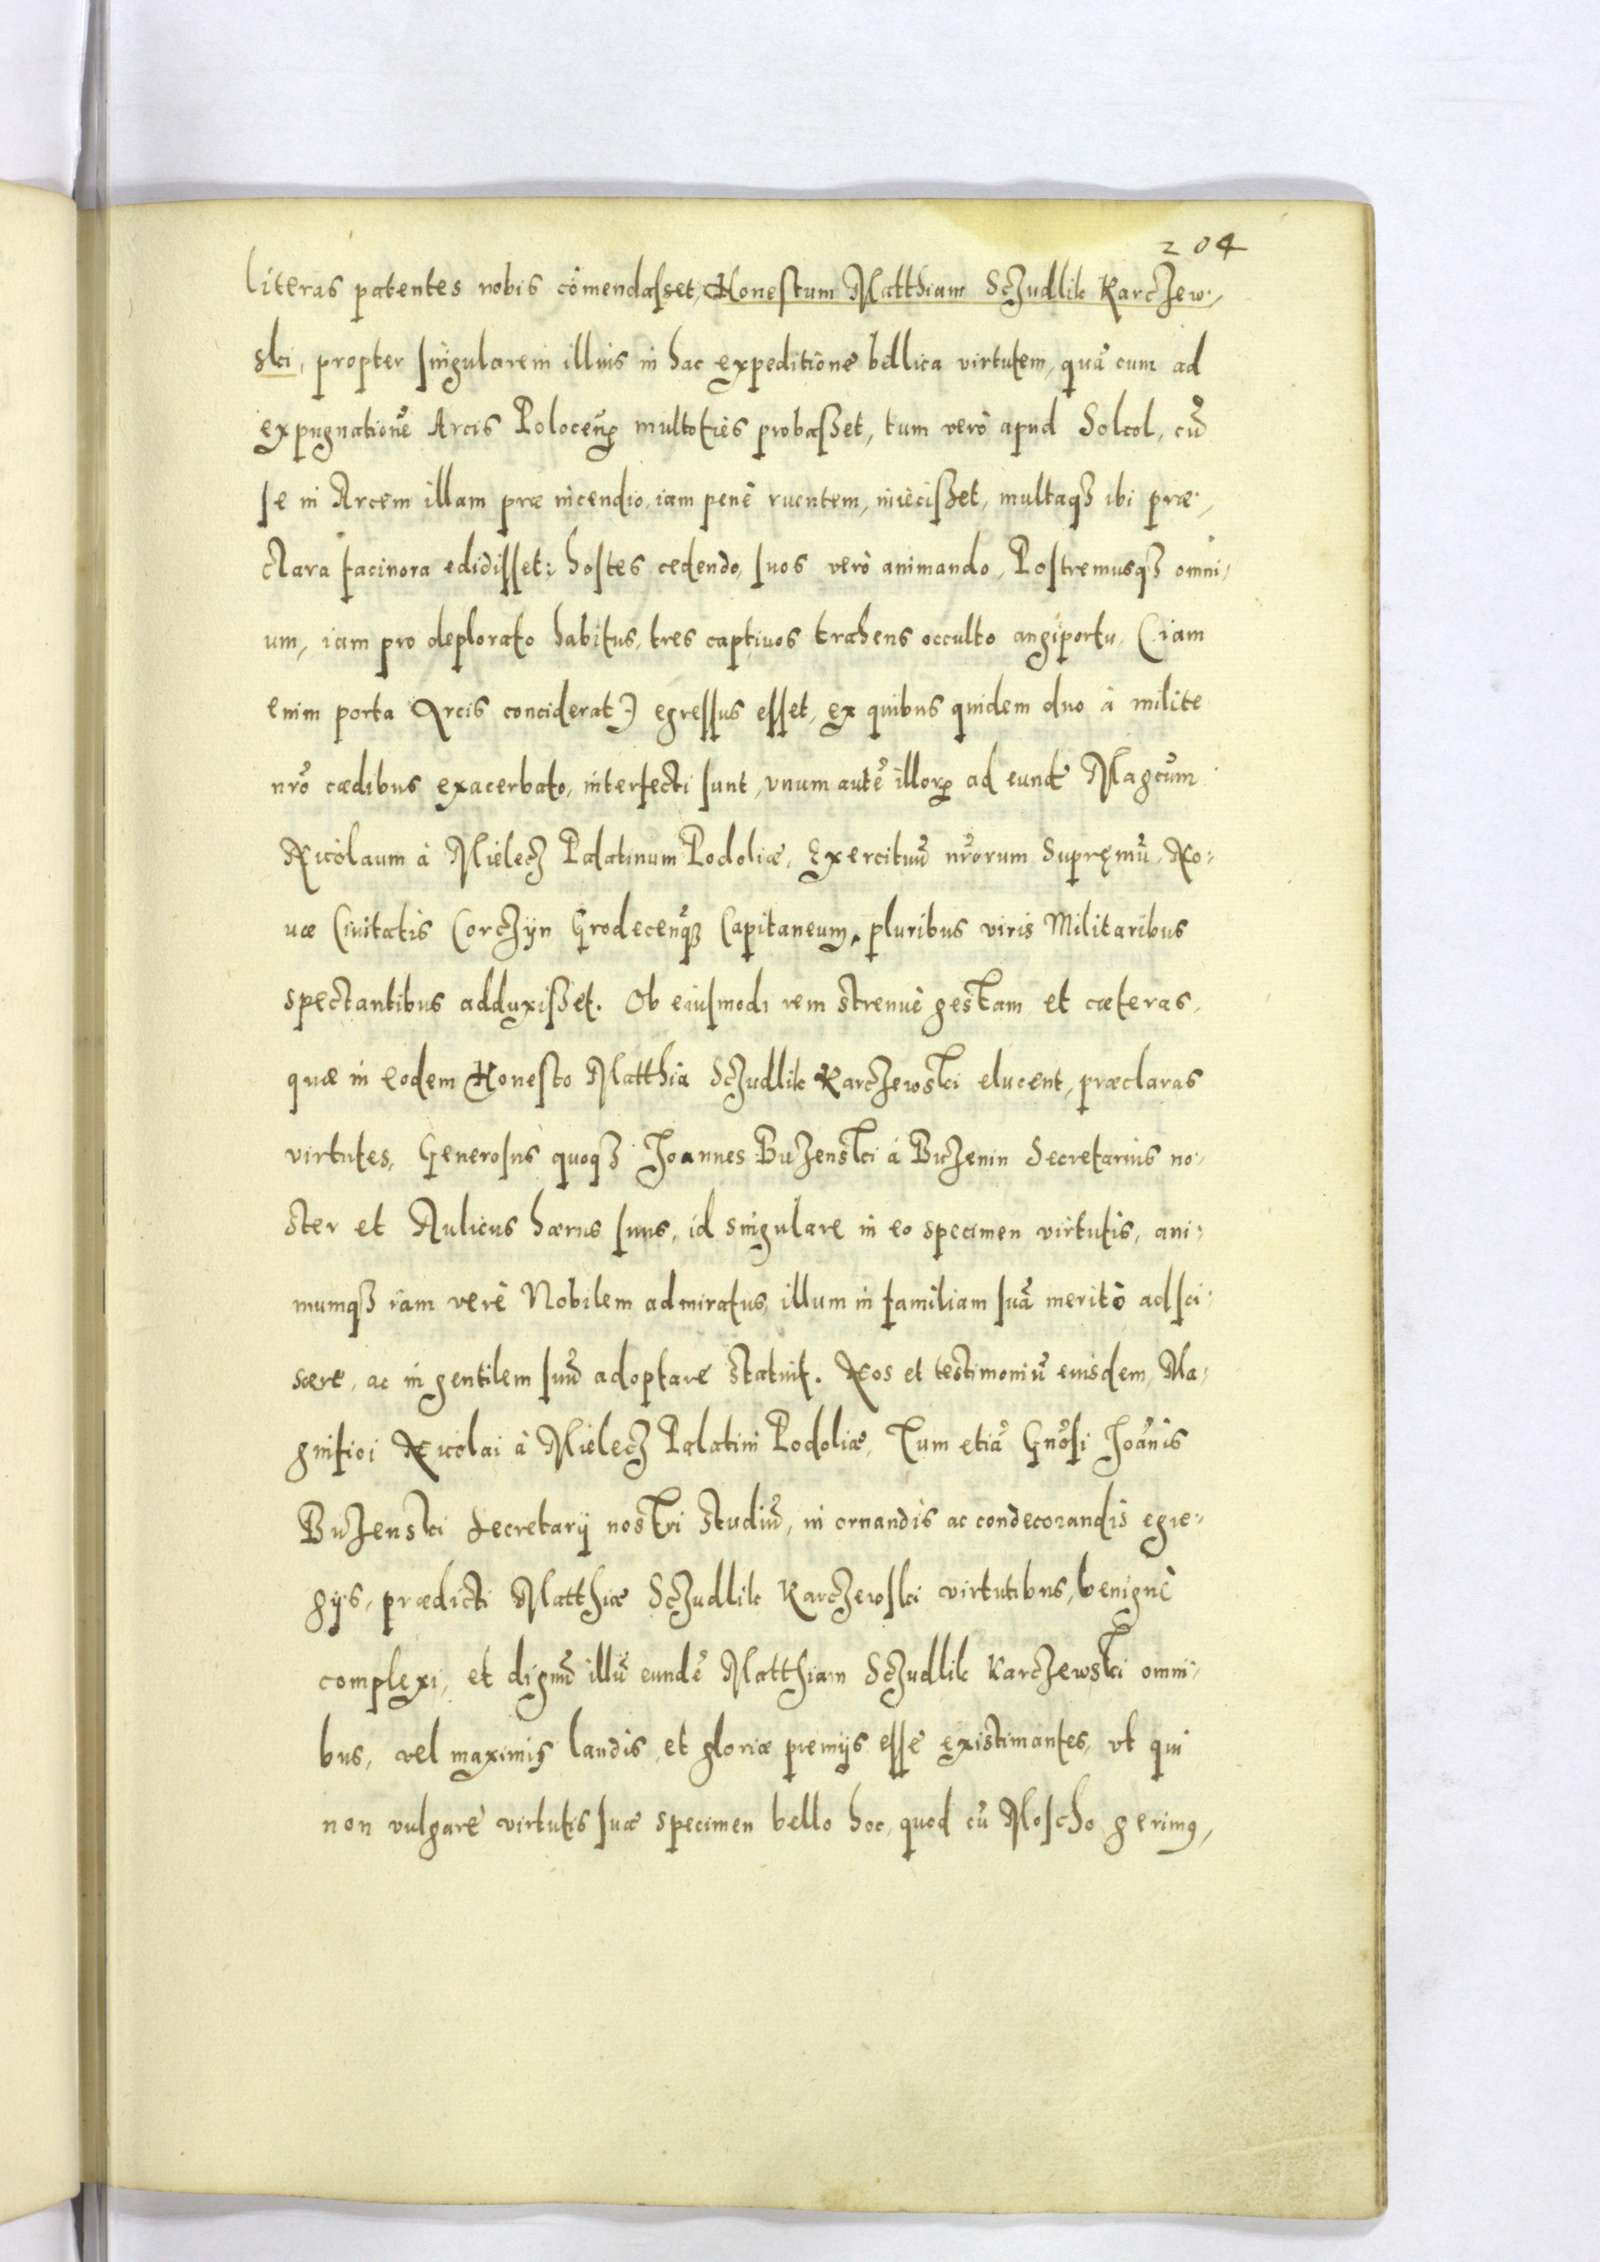 204
literas patentes nobis cõmendasset, Honestum Matthiam Sczudlik Karczew-
ski, propter singularem illius in hac expeditione bellica virtutem, quã cum ad
expugnationẽ Arcis Polocen̄ multoties probasset, tum verò apud Sokol, cũ
se in Arcem illam præ incendio, iam penè ruentem, iniecisset, multaqꝫ ibi præ-
clara facinora edidisset: hostes cedendo, suos verò animando, Postremusqꝫ omni-
um, iam pro deplorato habitus, tres captiuos trahens occulto angiportu, (iam
enim porta Arcis conciderat) egressus esset, ex quibus quidem duo à milite
nr̃o cædibus exacerbato, interfecti sunt, vnum autẽ illorꝝ ad eundẽ Magcũm
Nicolaum à Mielecz Palatinum Podoliæ, Exercituũ nr̃orum Supremũ, No-
uæ Ciuitatis Corczyn Grodecen̄qꝫ Capitaneum, pluribus viris Militaribus
spectantibus adduxisset. Ob eiusmodi rem strenuè gestam et cæteras,
quæ in eodem Honesto Matthia Sczudlik Karczewski elucent, præclaras
virtutes, Generosus quoqꝫ Joannes Buzenski à Buzenin Secretarius no-
ster et Aulicus hærus suus, id singulare in eo specimen virtutis, ani-
mumqꝫ iam verè Nobilem admiratus, illum in familiam suã meritò adsci-
scere, ac in gentilem suũ adoptare statuit. Nos et testimoniũ eiusdem, Ma-
gnifici Nicolai à Mielecz Palatini Podoliæ, Tum etiã Gnõsi Joãnis
Buzenski Secretarij nostri studiũ, in ornandis ac condecorandis egre-
gijs, prædicti Matthiæ Sczudlik Karczewski virtutibus, benignè
complexi, et dignũ illũ eundẽ Matthiam Sczudlik Karczewski omni-
bus, vel maximis laudis et gloriæ premijs esse existimantes, vt qui
non vulgare virtutis suæ specimen bello hoc, quod cũ Moscho gerimꝰ,